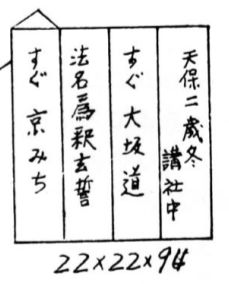 天保二歳冬
講社中
すぐ大坂道
法名為釈玄誓
すぐ京みち
22×22×94